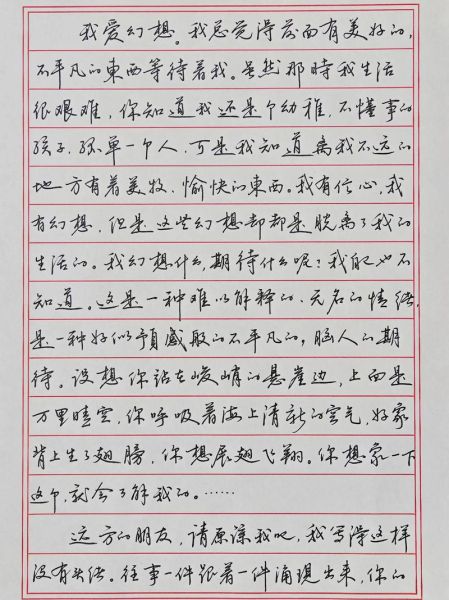 我爱幻想。我总觉得前面有美好的,
不平凡的東西等待着我。虽然那時我生活
很艰难,你知道我还是个幼稚,不懂事的
孩子,孤单一个人,可是我知道离我不远的
地方有着美妙、愉快的東西。我有信心,我
有幻想,但是这些幻想却都是脱离了我的
生活的。我幻想什么,期待什么呢?我自也不
知道。这是一种难以解释的、无名的情绪,
是一种好似預感般的不平凡的,惱人的期
待。设想你站在峻峭的悬崖边,上面是
万里晴空,你呼吸着海上清新的空气,好象
背上生了翅膀,你想展翅飞翔。你想象一下
这个,就会了解我的。……
远方的朋友,请原谅我吧,我写得这样
没有头绪。往事一件跟着一件涌現出来,你的